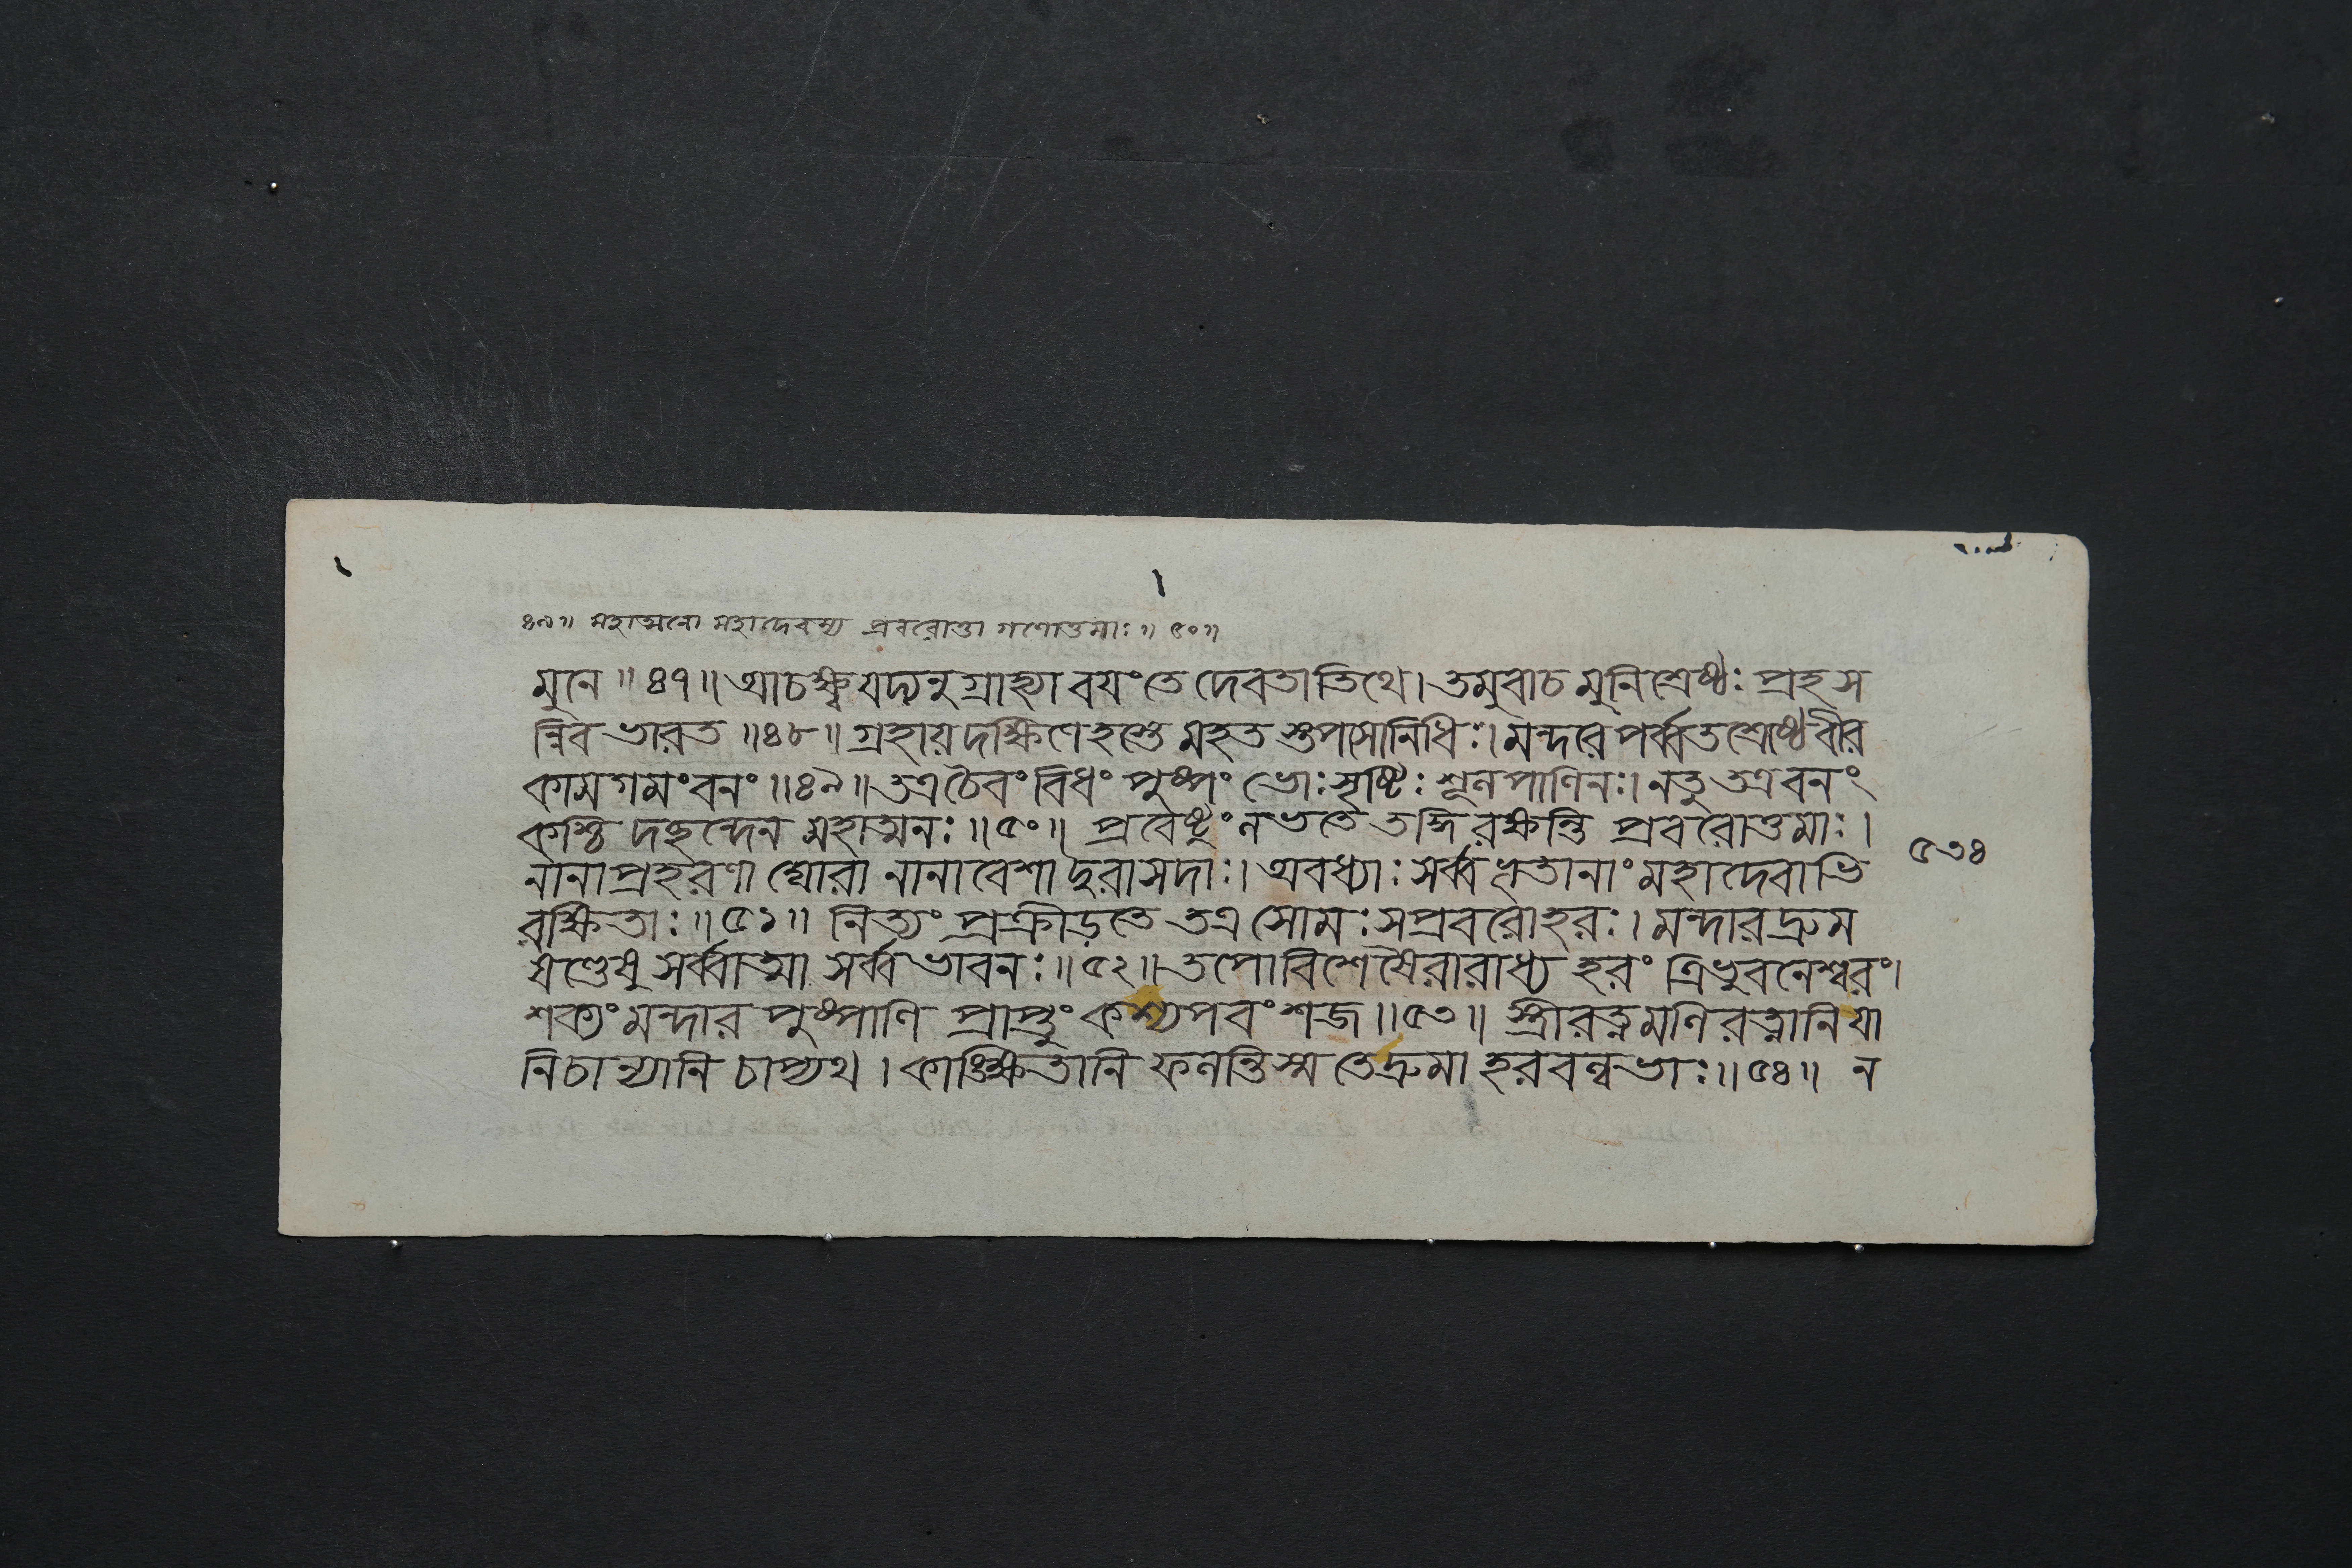 ৪৯॥ মহাত্মনো মহাদেবস্য প্রবরোত্তা গণোত্তমাঃ॥ ৫০॥
মুনে ॥ ৪৭॥ আচক্ষ্ব যদ্যনুগ্রাহ্যা বয়ং তে দেবতাতিথে। তমুবাচ মুনিশ্রেষ্ঠঃ প্রহস
ন্নিব ভারত ॥৪৮॥ গ্রহায় দক্ষিণে হস্তে মহত স্তপসোনিধিঃ। মন্দরে পর্ব্বতশ্রেষ্ঠে বীর
কামগমং বনং ॥৪৯॥ তত্র চৈবং বিধং পুষ্পং ভোঃ সৃষ্টিঃ শূলপাণিনঃ। নতু তত্র বনং
কশ্চি দছন্দেন মহাত্মনঃ ॥৫০॥ প্রবেষ্টুং লভতে তদ্দি রক্ষন্তি প্রবরোত্তমাঃ।
নানাপ্রহরণা ঘোরা নানাবেশা দুরাসদাঃ। অবধ্যাঃ সর্ব্বভূতানাং মহাদেবাভি
রক্ষিতাঃ ॥৫১॥ নিত্যং প্রক্রীড়তে তত্র সোমঃ সপ্রবরোহরঃ। মন্দারদ্রুম
ষণ্ডেষু সর্ব্বাত্মা সর্ব্বভাবনঃ ॥৫২॥ তপোবিশেষৈরারাধ্য হরং ত্রিভুবনেশ্বরং।
শক্যং মন্দার পুষ্পাণি প্রাপ্তুং কশ্যপবংশজ ॥৫৩॥ স্ত্রীরত্নমণিরত্নানি যা
নি চান্যানি চাপ্যথ। কাঙ্ক্ষিতানি ফলন্তি স্ম তে দ্রুমা হরবল্লভাঃ ॥৫৪॥ ন
৫৩৪